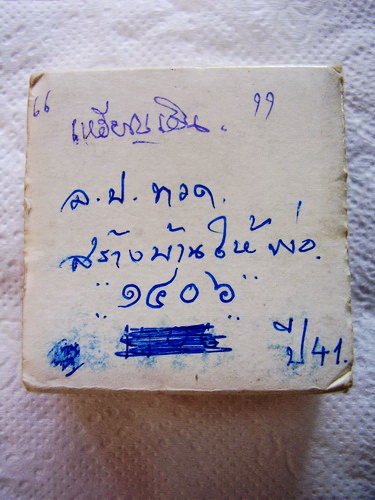 "เหรียญเงิน."
ล.ป. ทวด.
สร้างบ้านให้ พ่อ.
"๑๔๐๖"
ปี 41.